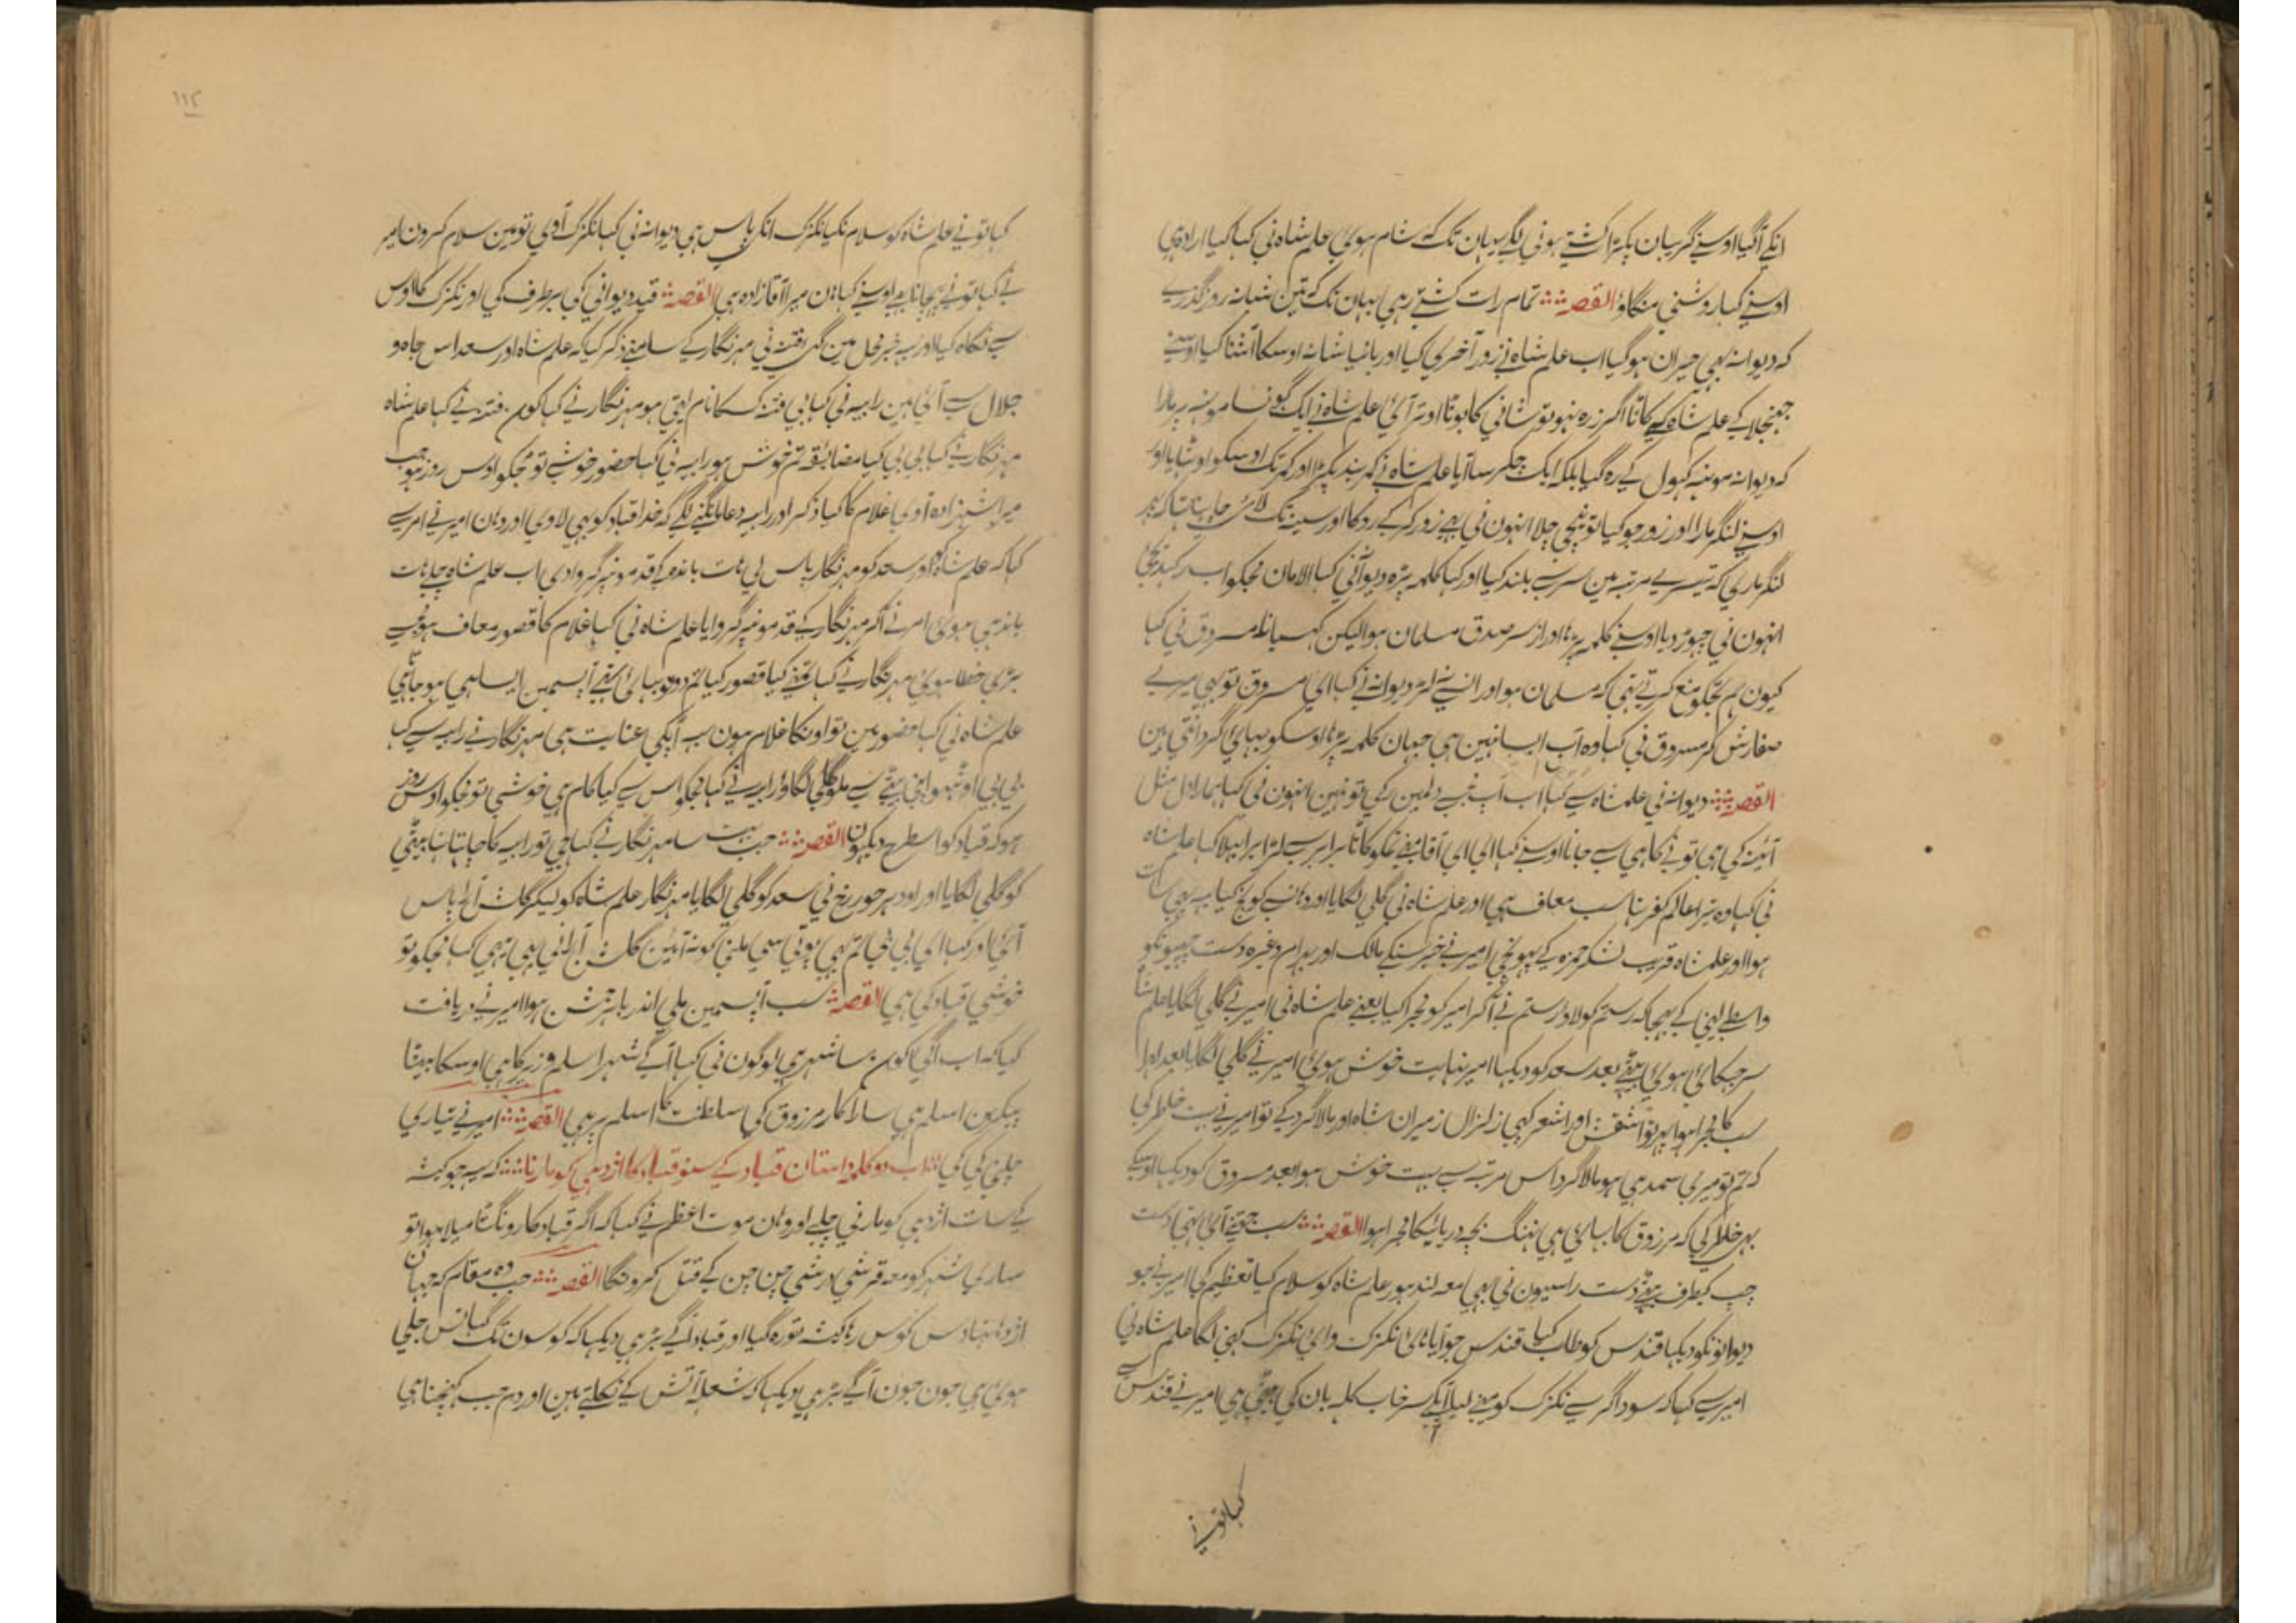 انکے آگیا اوسنے گریبان پکڑا کشتے ہونی لگے یہان تک کہ شام ہوئی علم شاہ نی کہا کیا ارادہ ہی
اوسنے کہا روشنی منگاؤ القصہ تمام رات کشتے رہی یہان تک کہ تین شبانہ روز گذرے
کہ دیوانہ بھی حیران ہو گیا اب علم شاہ نے زور آخری کیا اور شانہ اوسکا آشنا کیا اوسنے
جھنجلا کے علم شاہ کے کاٹا اگر زرہ نہو تو شانی کا بوٹا اوتر آئی علم شاہ نے ایک گھونسا مونہہ پر مارا
کہ دیوانہ مونہہ کہول کے رہ گیا بلکہ ایک چکر سا آیا علم شاہ نے کمربند پکڑا اور کمر تک اوسکو اوٹہایا اور
اوسنے لنگر مارا اور زور جو کیا تو نیچی چلا انہون نی بہی زور کر کے روکا اور سینہ تک لائی
لنگر ماری کہ تیسرے مرتبہ مین سر سے بلند کیا اور کہا کلمہ پڑہ دیوانی کہا الامان مجکو اب
انہون نی چہوڑ دیا اوسنے کلمہ پڑہا اور از سر صدق مسلمان ہوا لیکن مسروق نی کہا
کیون ہم تجکو منع کرتے تہی کہ مسلمان ہو اور انسے نہ لڑ دیوانہ نے کہا ای مسروق تو بہی میرے
صفارش کر مسروق نی کہا وہ اب ایسا نہین ہی جہان کلمہ پڑہا اوسکو بہائی گردانتی ہین
القصہ دیوانہ نی علمشاہ سے کہا اب آپ دلمین کہی تو نہین انہون نی کہا ہمارا دل مثل
آئینہ کی ہی تو نے کاہی سے جانا اوسنے کہا ای ای آقا مینے تمکو کاٹا برابر سے لڑا کہا علم شاہ
نی کہا وہ تیرا عالم کفر تہا سب معاف ہی اور علم شاہ نی گلی لگایا اور وہانسے کوچ کیا
ہوا اور علمشاہ قریب لشکر حمزہ کے پہونچی امیر نے خبر سنکے مالک اور بہرام وغیرہ دست چپیونکو
واسطے لینی کے بہیجا کہ رستم کو لاؤ رستم نے آکر امیر کو مجرا کیا یعنے علم شاہ نی امیر نے گلی لگایا علمشا
سر جہکائی ہوئی بیٹھے بعد سعد کو دیکہا امیر نہایت خوش ہوئی امیر نے گلی لگایا بعد اوا
سب کا مجرا ہوا اور بالاگرد کے تو امیر نے بہت خاطر کی
کہ تم تو میری سمدہی ہو بالاگرد اس مرتبہ سے بہت خوش ہوا بعد مسروق کو دیکہا اوسکے
بہی خاطر کی کہ مرزوق کا بہائی ہی نہنگ بچہ دریائیکا مجرا ہوا القصہ سب جتنے آئی تہی دست
چپ کیطرف بیٹھے دست راسیون نی بہی معہ لندہور علم شاہ کو سلام کیا تعظیم کی امیر نے جو
دیوانونکو دیکہا قندس کو طلب کیا قندس جو آیا ہای نکزک وای نکزک کہنی لگا علم شاہ نی
امیر سے کہا کہ سوداگر سے نکزک کو مینے لیا سرخاب کلہ بان کی بیٹی ہی امیر نے قندس سے
کہا تونے
١١٢
کہا تونے علم شاہ کو سلام نکیا نکزک انکے پاس ہی دیوانہ نی کہا نکزک آدی تو مین سلام کرون امیر
نے کہا تونے پہچانا ہی اوسنے کہا ہان میرا آقازادہ ہی القصہ قید دیوانی کی برطرف کی اور نکزک کا اوس
سے نکاہ کیا اور یہ خبر محل مین گئی فتنہ نی مہرنگار کے سامنے ذکر کیا کہ علم شاہ اور سعد اس جاہ و
جلال سے آئی ہین رابیہ نی کہا بی بی فتنہ کسکا نام لیتی ہو مہرنگار نے کہا کون فتنہ نے کہا علم شاہ
مہرنگار نے کہا بی بی کیا مضایقہ تم خوش ہو رابیہ نی کہا حضور خوشے تو مجکو اوس روز ہو جب
میرا شہزادہ آدی غلام کا کیا ذکر اور رابیہ دعا مانگنے لگے کہ خدا قباد کو بہی لاوی اور وہان امیر نے امر سے
کہا کہ علم شاہ اور سعد کو مہرنگار پاس لی ہات باندہ کے قدمونپر گروادی اب علم شاہ چلے ہات
باندہی ہوئی امر نے اکر مہرنگار کے قدمونپر گروایا علم شاہ نی کہا غلام کا قصور معاف ہو مجسے
بڑی خطا ہوئی مہرنگار نے کہا تمنے کیا قصور کیا تم دونو بہائی تھے آپسمین ایسا ہی ہو جاتا ہی
علم شاہ نی کہا حضور مین تو اونکا غلام ہون یہ آپکی عنایت ہی مہرنگار نے رابیہ سے کہا
بی بی اوٹہو اپنی بیٹے سے ملو گلی لگاؤ رابیہ نے کہا مجکو اس سے کیا کام ہی خوشی تو مجکو اوس روز
ہو کہ قباد کو اسطرح دیکہون القصہ جب بہت سا مہرنگار نے کہا جی تو رابیہ کا چاہتا تہا بیٹی
کو گلی لگایا اور اودہر حور رخ نی سعد کو گلی لگایا مہرنگار علم شاہ کو لیکر گلشن آرا پاس
آئی اور کہا ای بی بی تم بہی پوتی سی ملنی کو نہ آئین گلشن آرا نی بہی یہی کہا مجکو تو
خوشی قباد کی ہی القصہ سب آپسمین ملی اندر باہر جشن ہوا امیر نے دریافت
کیا کہ اب اگی کون سا شہر ہی لوگون نی کہا آگے شہر اسلم وزیر کا ہی اوسکا بیٹا
پیکر بن اسلم ہی سارا کار مرزوق کی سلطنت کا اسلم پر ہی القصہ امیر نے تیاری
چلنی کی کی اب دو کلمہ داستان قباد کے سنو قباد کا اژدہی کو مارنا کہ یہ جو کیث
کے سات اژدہی کو مارنی چلے اور وہان موت اعظم نے کہا کہ اگر قباد کا رونگٹا میلا ہوا تو
ساری شہر کو معہ قرشی چن چن کے قتل کرونگا القصہ جب وہ مقام کہ جہان
اژدہا تہا دس کوس رہا کیث توره گیا اور قباد اگے بڑہی دیکہا کہ کوسون تک گہانس جلی
ہوئی ہی جون جون آگے بڑہی دیکہا کہ شعلہ آتش کے نکلتے ہین اور دم جب کہینچتا ہی